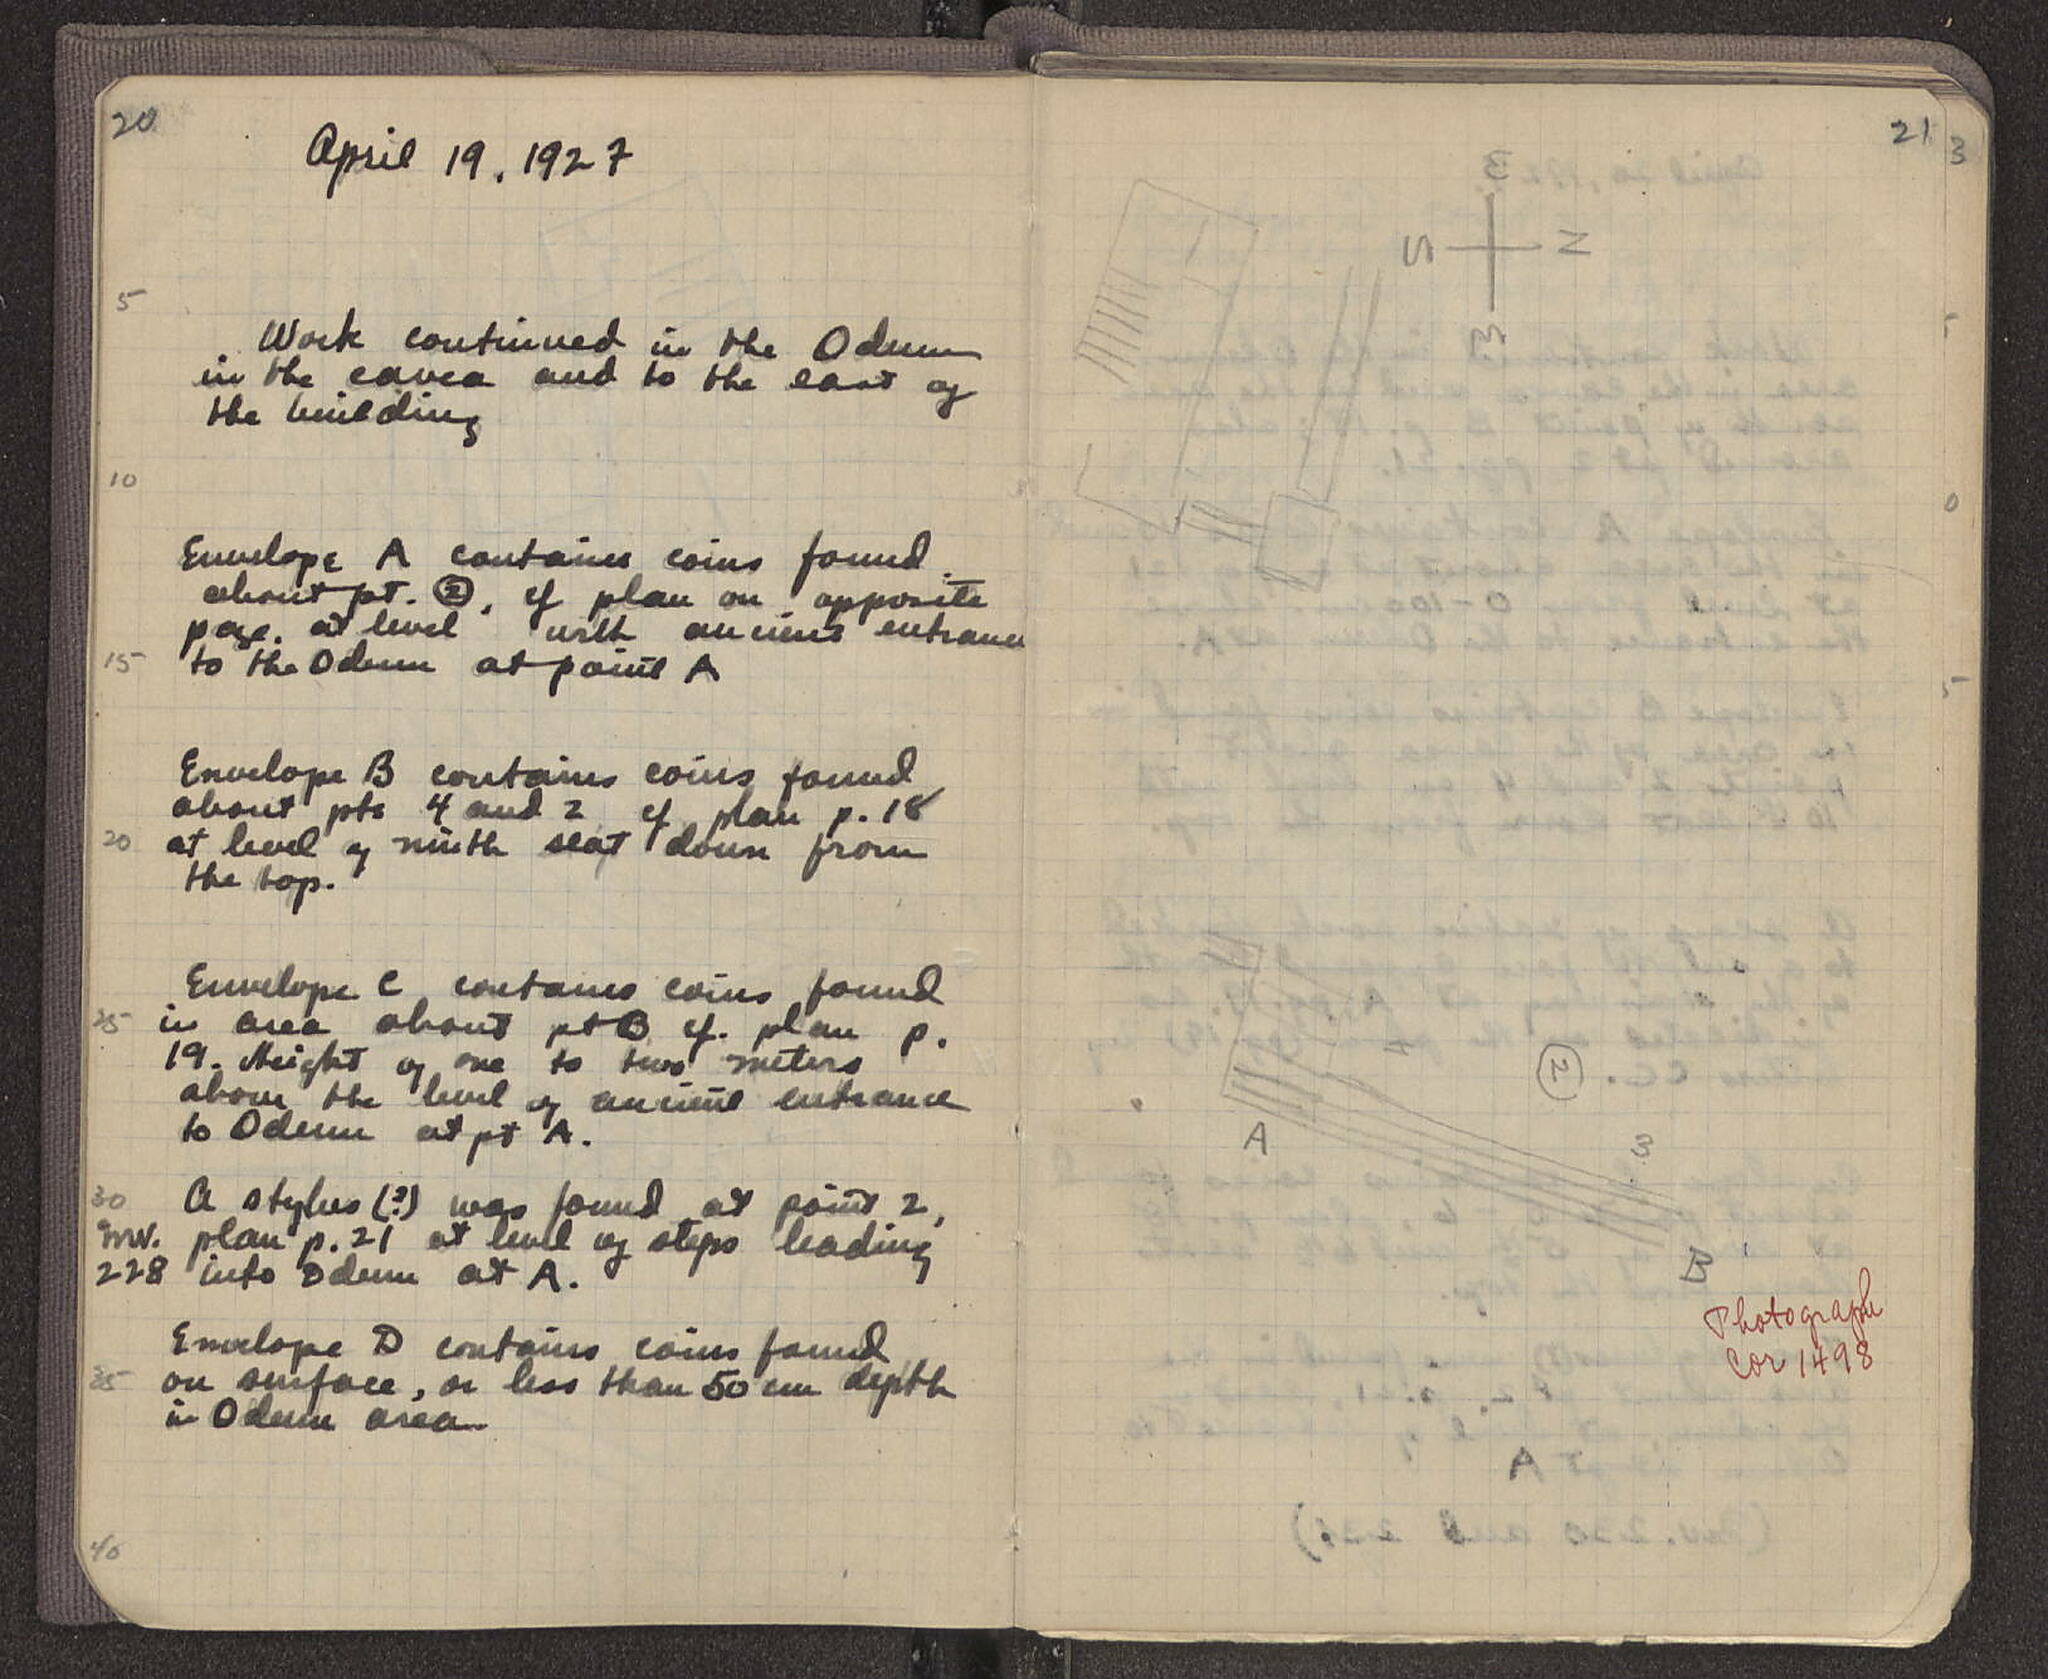 20
April 19, 1927
5
Work continued in the Odeum
in the cavea and to the east of
the building
10
Envelope A contains coins found
about pt. ②, cf plan on opposite
page. at level with ancient entrance
15 to the Odeum at point A
Envelope B contains coins found
about pts 4 and 2 cf plan p. 18
20 at level of ninth seat down from
the top.
Envelope C contains coins found
25 in area about pt B cf. plan p.
19. Height of one to two meters
above the level of ancient entrance
to Odeum at pt A.
30 A stylus (?) was found at point 2,
Inv. plan p. 21 at level of steps leading
228 into Odeum at A.
Envelope D contains coins found
35 on surface, or less than 50 cm depth
in Odeum area
40
21
3
E
S N
W
5
0
5
②
A
3
B
Photograph
Cor 1498
A